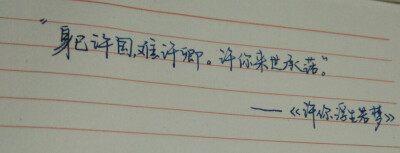 “身已许国,难许卿。许你来世承诺”。
——《许你浮生若梦》